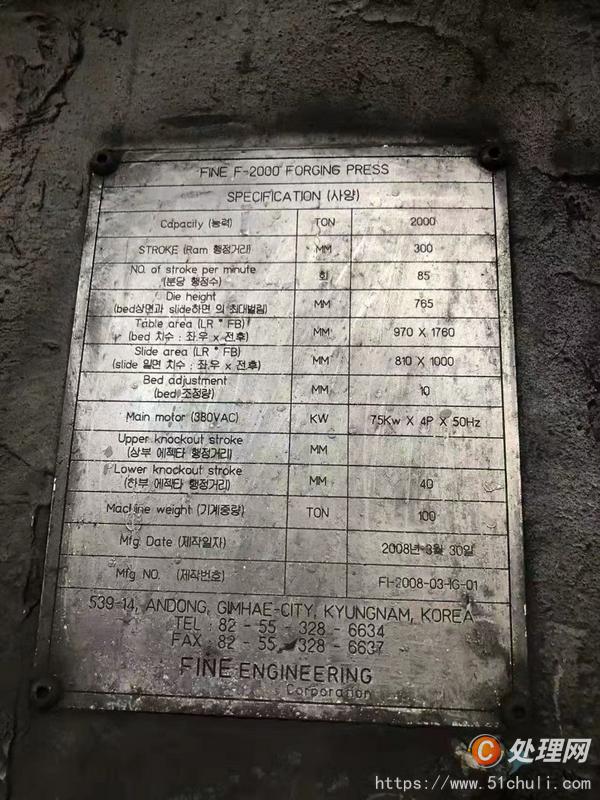 FINE F-2000 FORGING PRESS
SPECIFICATION (사양)
Capacity (능력) TON 2000
STROKE (Ram 행정거리) MM 300
NO. of stroke per minute
(분당 행정수) 회 85
Die height
(bed상면과 slide하면 의 최대벌림) MM 765
Table area (LR * FB)
(bed 치수 : 좌우 x 전후) MM 970 X 1760
Slide area (LR * FB)
(slide 밑면 치수 : 좌우 x 전후) MM 810 X 1000
Bed adjustment
(bed 조정량) MM 10
Main motor (380VAC) KW 75Kw X 4P X 50Hz
Upper knockout stroke
(상부 에젝타 행정거리) MM
Lower knockout stroke
(하부 에젝타 행정거리) MM 40
Machine weight (기계중량) TON 100
Mfg. Date (제작일자) 2008년 3월 30일
Mfg NO. (제작번호) FI-2008-03-IG-01
539-14, ANDONG, GIMHAE-CITY, KYUNGNAM, KOREA
TEL : 82 - 55 - 328 - 6634
FAX : 82 - 55 - 328 - 6637
FINE ENGINEERING
Corporation
C 处理网
https://www.51chuli.com